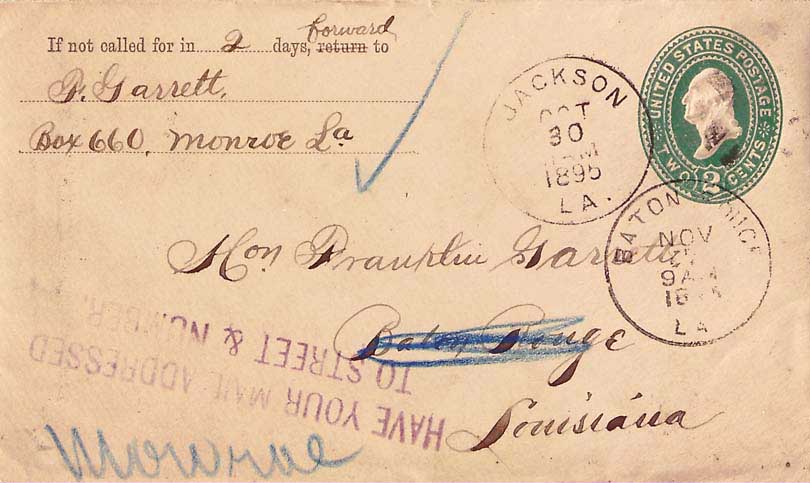 forward
If not called for in 2 days, return to
P. Garrett,
Box 660, Monroe La
UNITED STATES POSTAGE
TWO 2 CENTS
JACKSON
OCT
30
AM
1895
LA.
BATON
NOV
9AM
LA
Hon Franklin Garrett
Baton Rouge
Louisiana
HAVE YOUR MAIL ADDRESSED
TO STREET & NUMBER.
Monroe